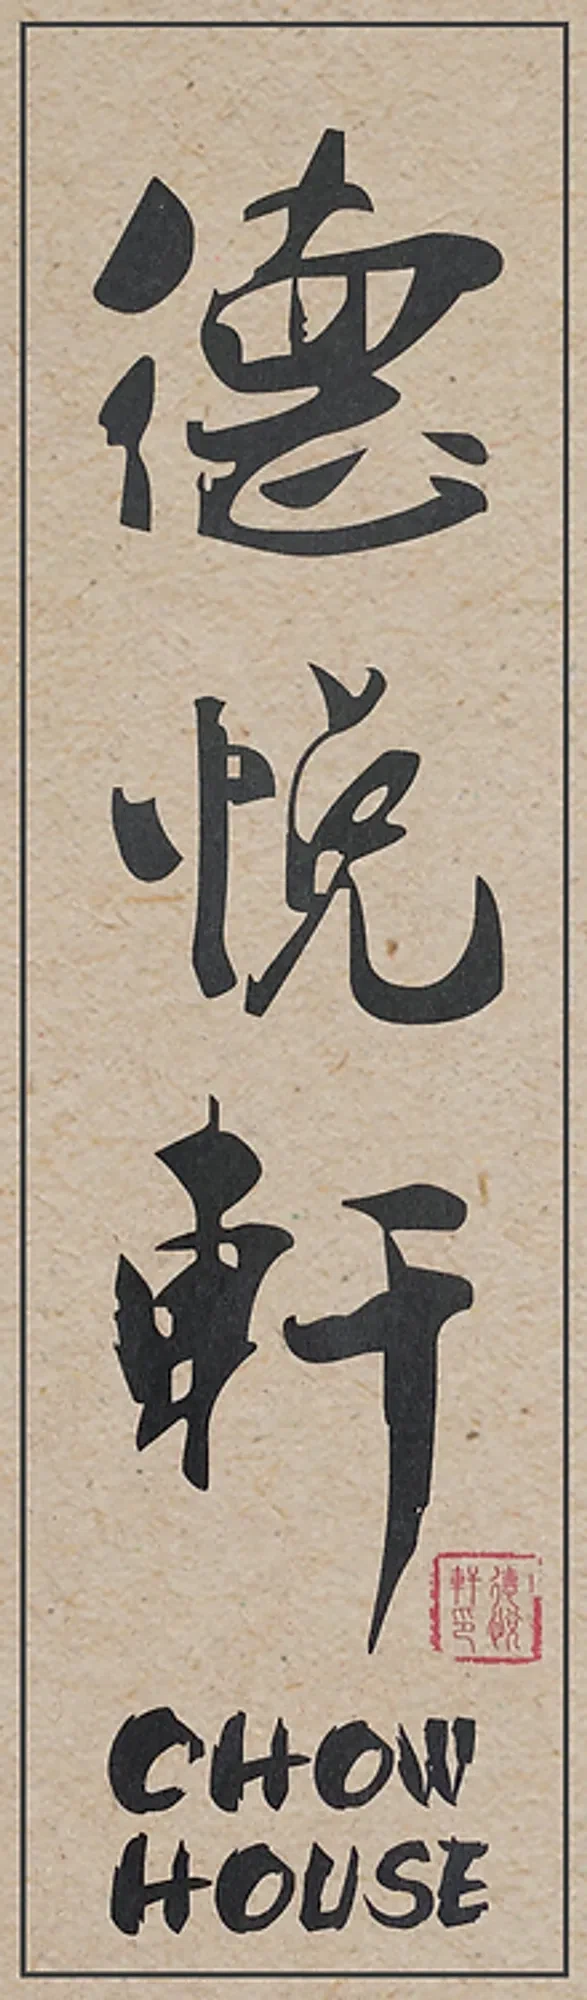 德悅軒
德悅
軒印
CHOW
HOUSE